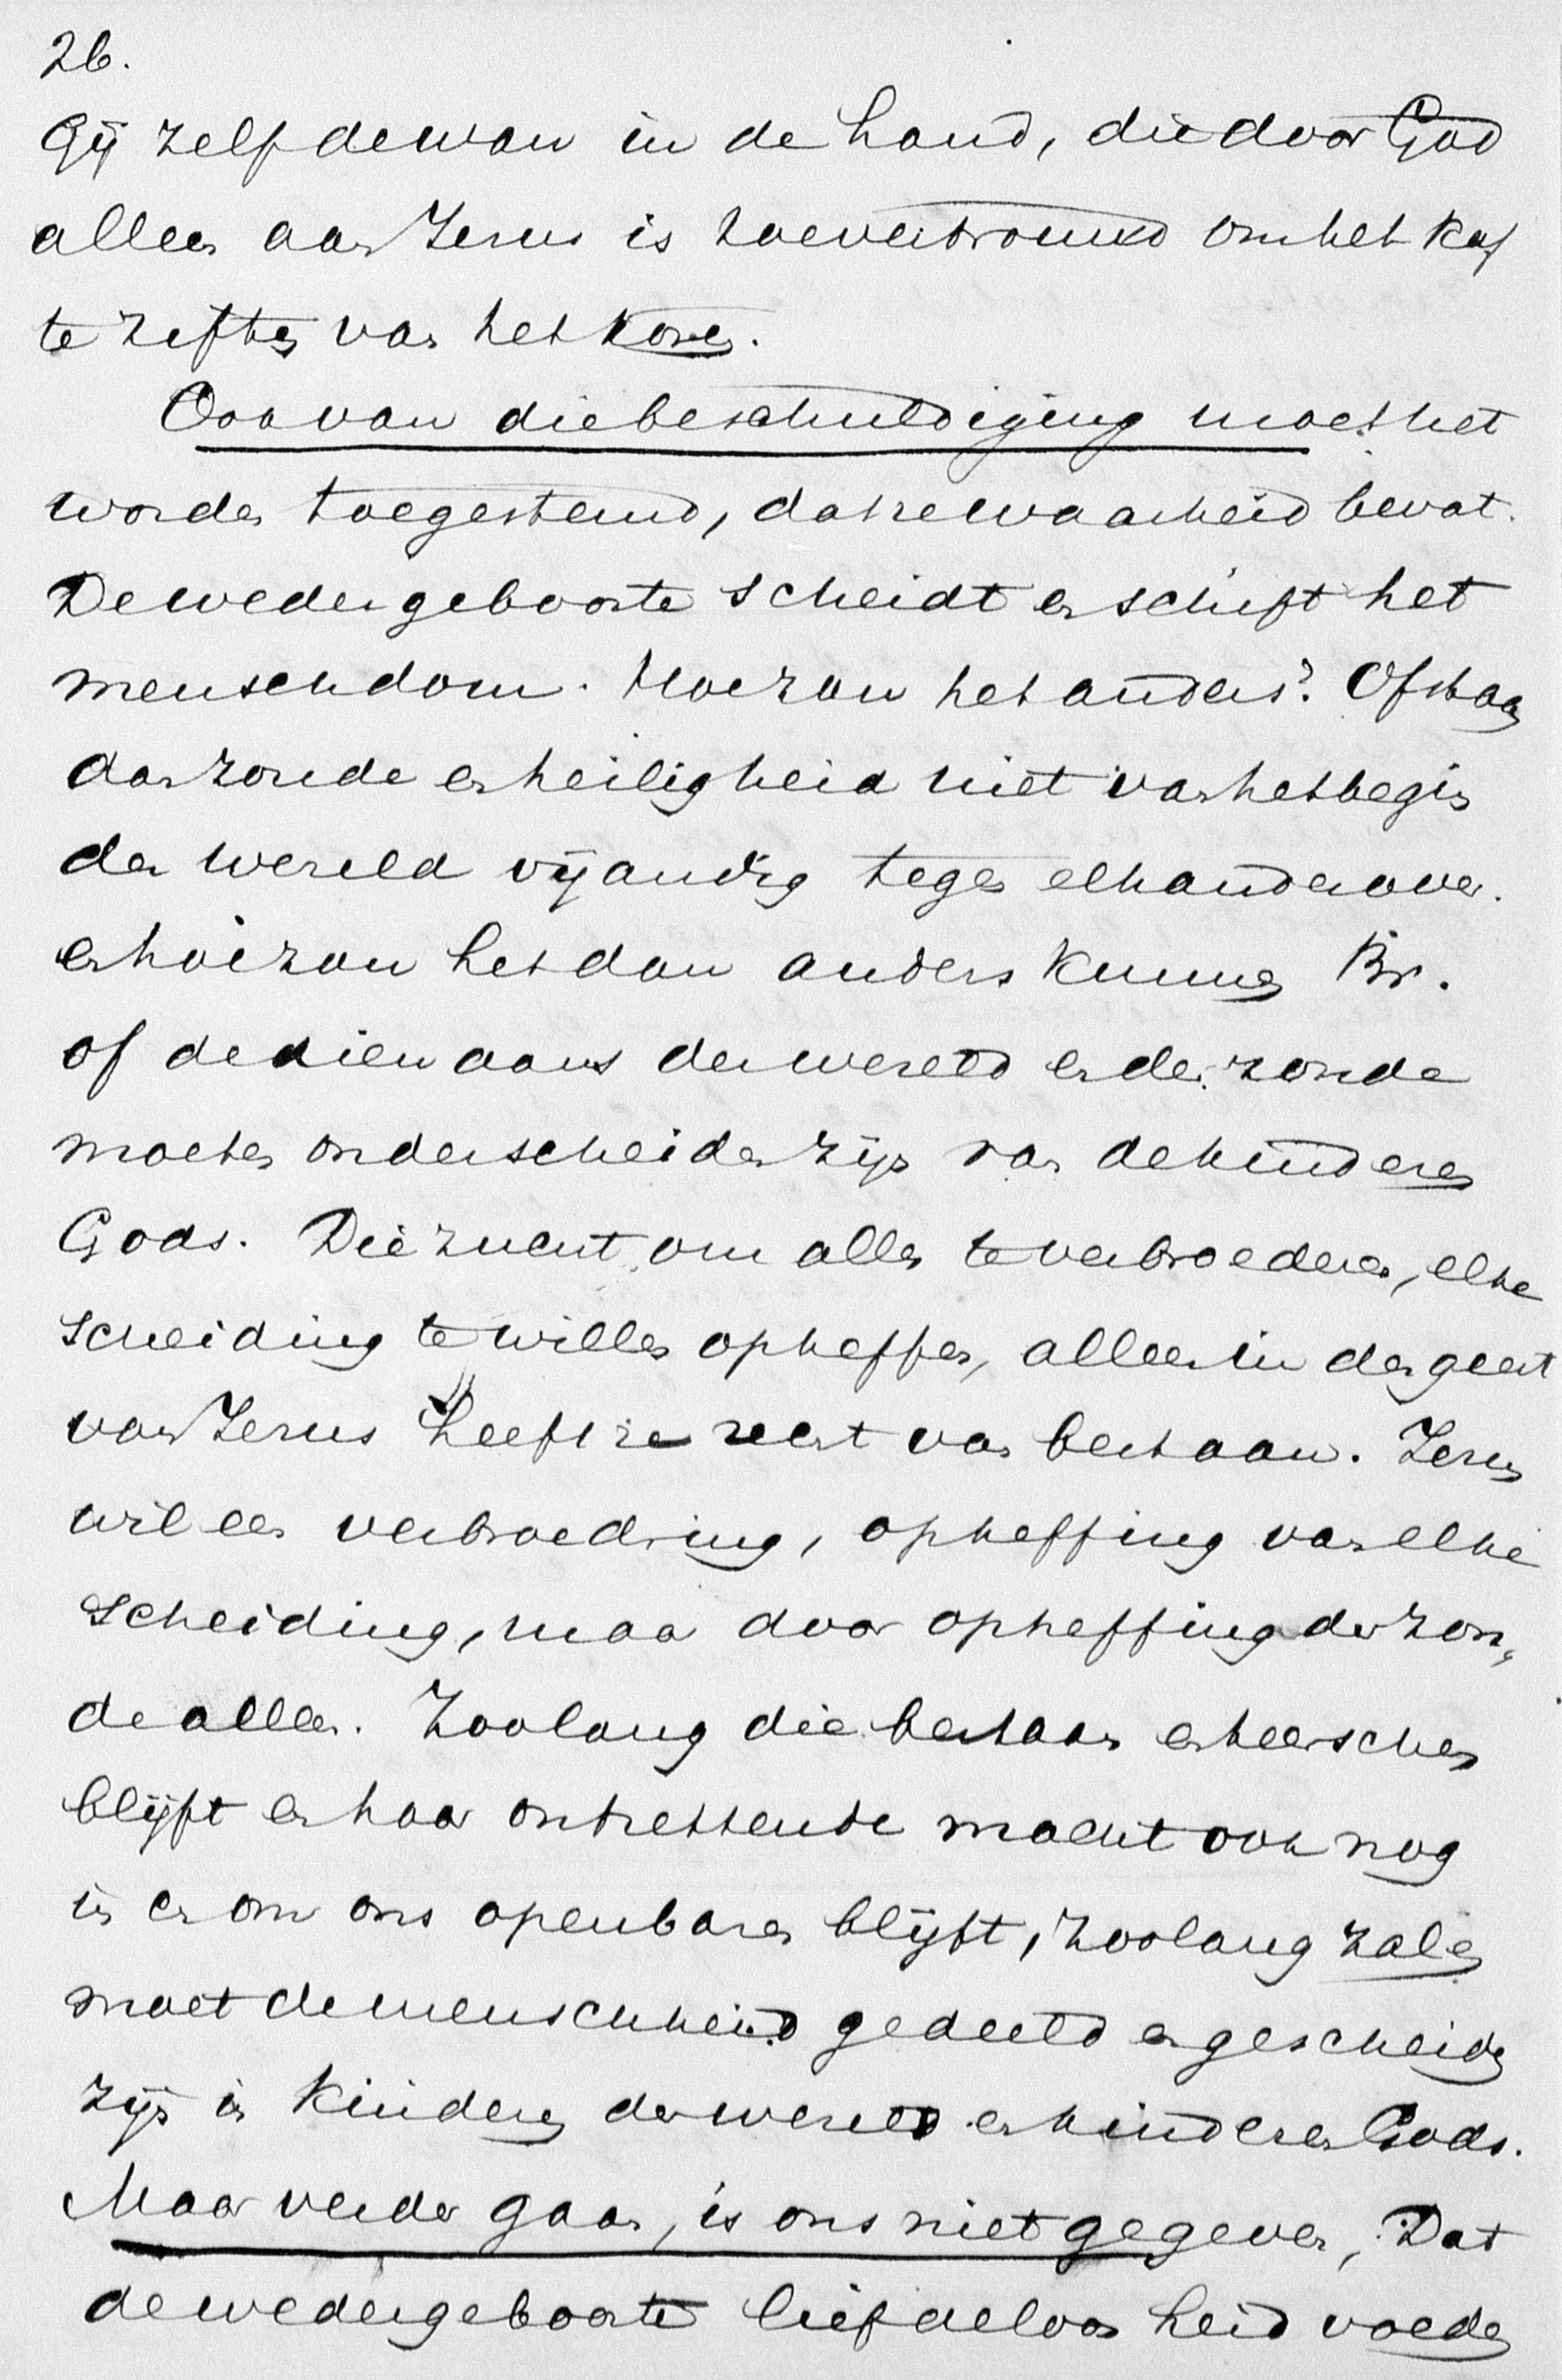 26.
Gij zelf de wan in de hand, die door God
alleen aan Jezus is toevertrouwd om het kaf
te ziften van het koren.
Ook van die beschuldiging moet het
worden toegestemd, dat ze waarheid bevat.
De wedergeboorte scheidt en schift het
menschdom. Hoe zou het anders? Of staan
dan zonde en heiligheid niet van het begin
der wereld vijandig tegen elkander over.
en hoe zou het dan anders kunnen Br.
of de dienaars der wereld en der zonde
moeten onderscheiden zijn van de kinderen
Gods. Die zucht om allen te verbroederen, elke
scheiding te willen opheffen, alleen in den geest
van Jezus heeft ze recht van bestaan. Jezus
wil een verbroedring, opheffing van elke
scheiding, maar door opheffing der zon„
de alleen. Zoolang die bestaan en heerschen
blijft en haar ontzettende macht ook nog
in en om ons openbaren blijft, zoolang zal en
moet de menschheid gedeeld en gescheiden
zijn in kinderen der wereld en kinderen Gods.
Maar verder gaan, is ons niet gegeven, Dat
de wedergeboorte liefdeloosheid voeden